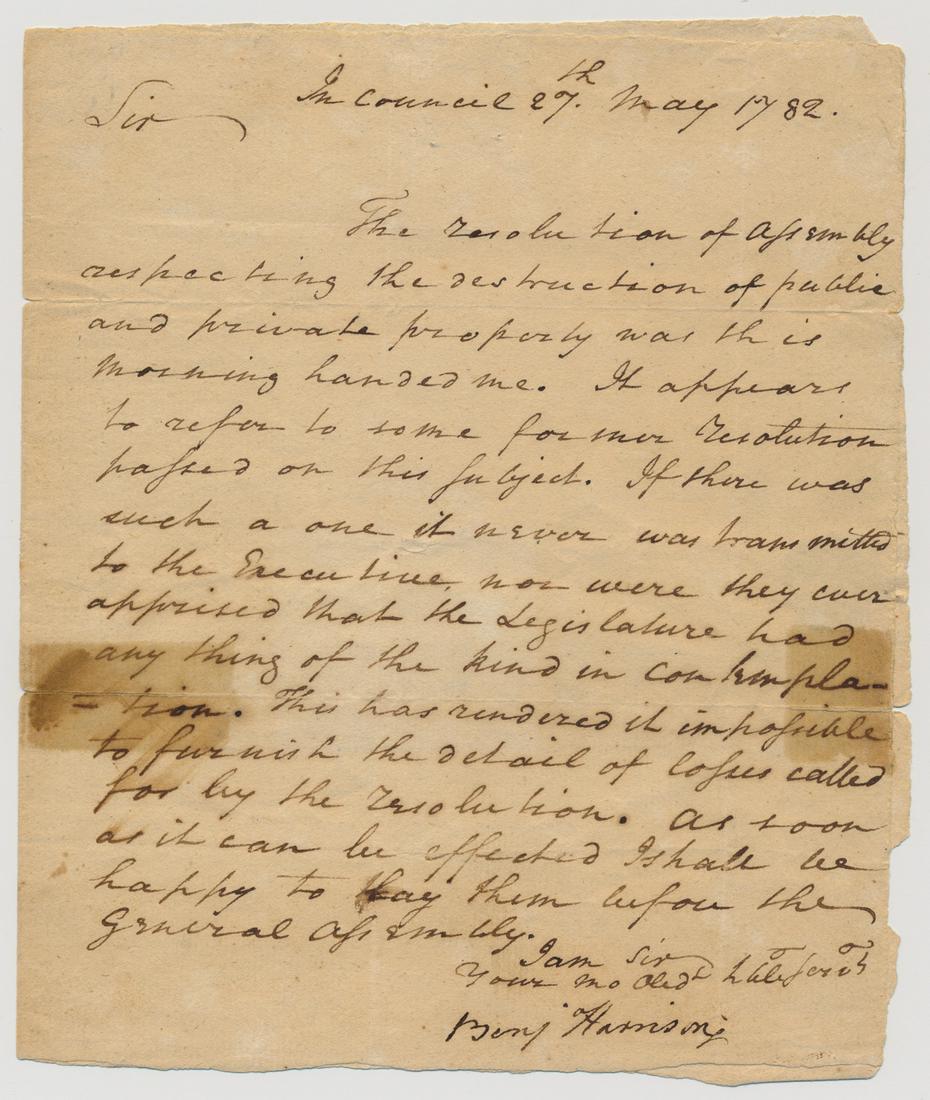 In Council 27th. May 1782.
Sir
The resolution of Assembly
respecting the destruction of public
and private property was this
morning handed me. It appears
to refer to some former resolution
passed on this subject. If there was
such a one it never was transmitted
to the Executive, nor were they ever
apprised that the Legislature had
any thing of the kind in contempla-
-tion. This has rendered it impossible
to furnish the detail of losses called
for by the resolution. As soon
as it can be effected I shall be
happy to lay them before the
General Assembly.
I am Sir
Your mo Obedt hble servt
Benj Harrison